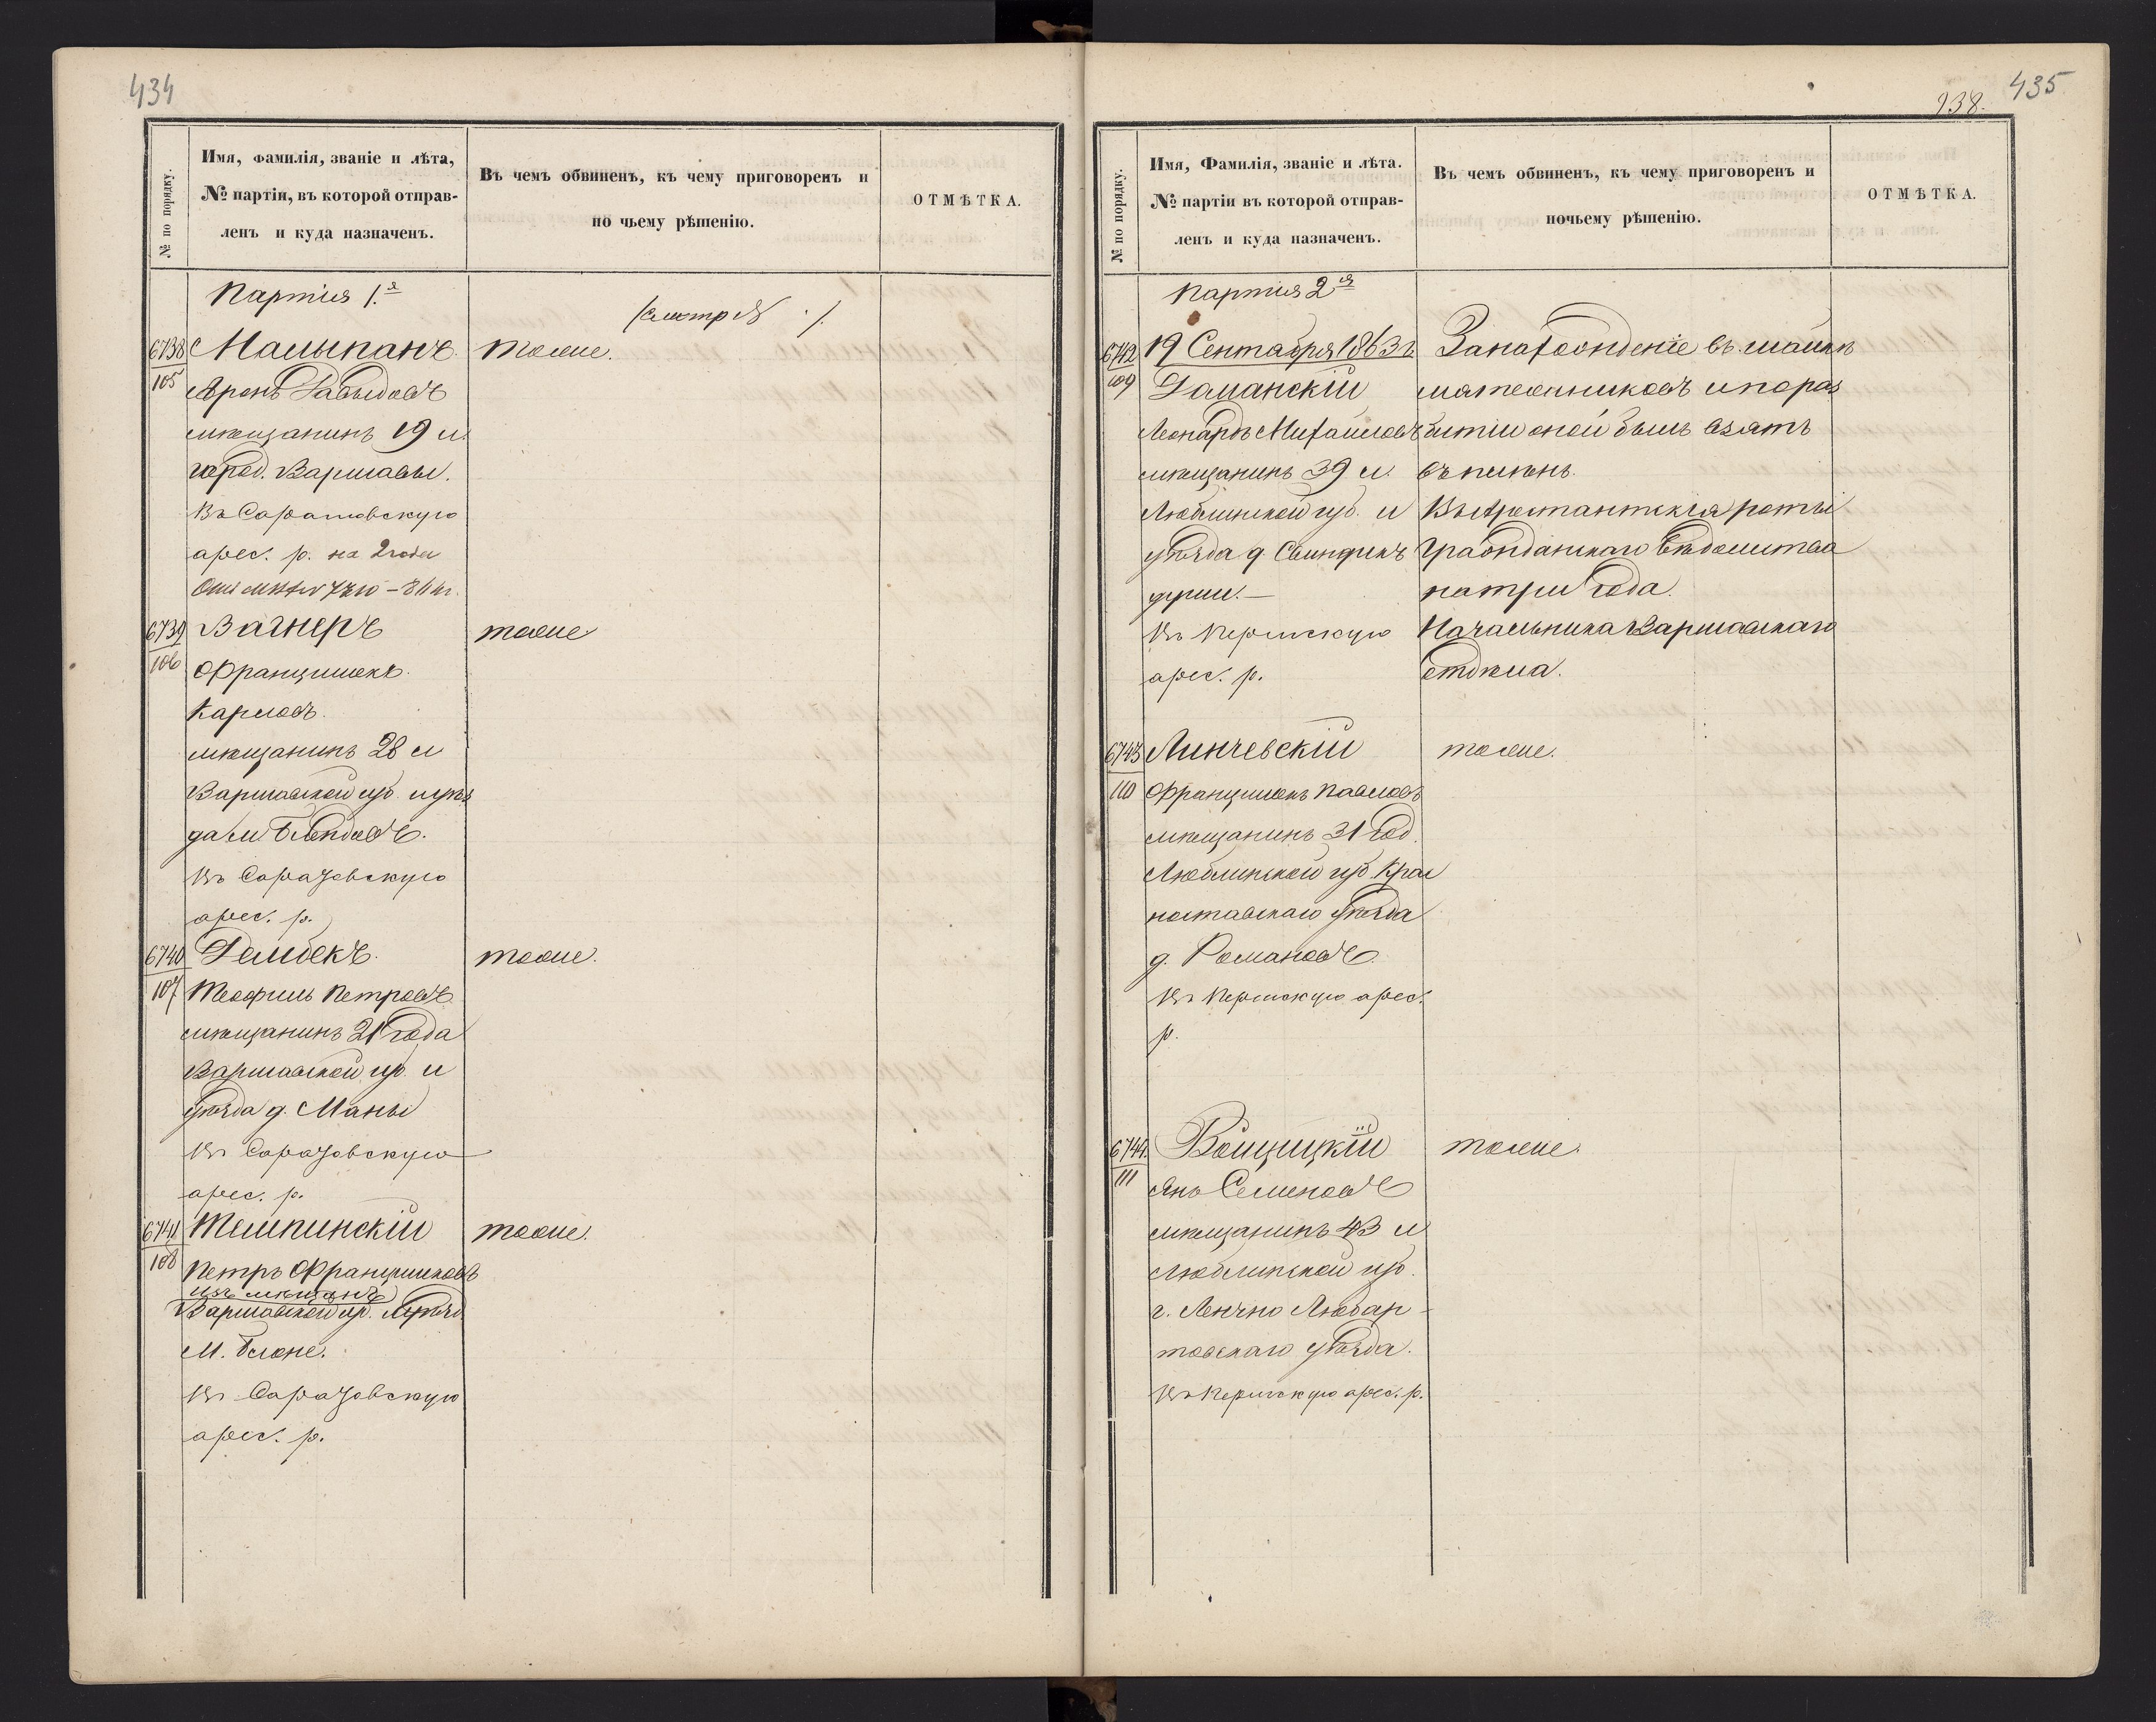 434
№ по порядку.
Имя, фамилія, званіе и лѣта,
№ партіи, въ которой отправ-
ленъ и куда назначенъ.
Въ чемъ обвиненъ, къ чему приговоренъ и
по чьему рѣшенію.
ОТМѢТКА.
Партія 1.я
(смотр №
6738
105
Малыпанъ
тоже.
Аронъ Давыдовъ
мѣщанинъ 19 л.
город. Варшавы.
Въ Саратовскую
арес. р. на 2 года
6739
106
Вагнеръ
тоже
Францишекъ
Карловъ.
мѣщанинъ 28 л
Варшавской губ. и уѣз
да м. Блендовъ.
Въ Саратовскую
арес. р.
6740
107
Дембекъ.
тоже.
Теофиль Петровъ
мѣщанинъ 21 года
Варшавской губ. и
уѣзда д. Маны
Въ Саратовскую
арес. р.
6741
108
Темпинскій
тоже.
Петръ Францишковъ
изъ мѣщанъ
Варшавской гу. и уѣзд.
М. Блоне.
Въ Саратовскую
арес. р.
435
938.
№ по порядку.
Имя, Фамилія, званіе и лѣта.
№ партіи въ которой отправ-
ленъ и куда назначенъ.
Въ чемъ обвиненъ, къ чему приговоренъ и
почьему рѣшенію.
ОТМѢТКА.
Партія 2я
6742
109
19 Сентября 1863 г.
Даманскій
Леонардъ Михайловъ
мѣщанинъ 39 л.
Люблинской губ. и
уѣзда д.
Въ Пермскую
арес. р.
За нахожденіе въ шайкѣ
мятежниковъ и по раз
битіи оной былъ взятъ
въ плѣнъ.
Въ Арестантскія роты
Гражданскаго Вѣдомства
на три года.
Начальника Варшавскаго
отдѣла.
6743
110
Линчевскій
тоже.
Францишекъ Павловъ
мѣщанинъ 31 год.
Люблинской губ. Крас
ноставскаго уѣзда
д. Романовъ.
Въ Пермскую арес.
р.
6744.
111
Вощицкій
тоже.
Янъ Семеновъ
мѣщанинъ 43 л
Люблинской губ.
г. Ленчно Любар-
товскаго уѣзда.
Въ Пермскую арес. р.